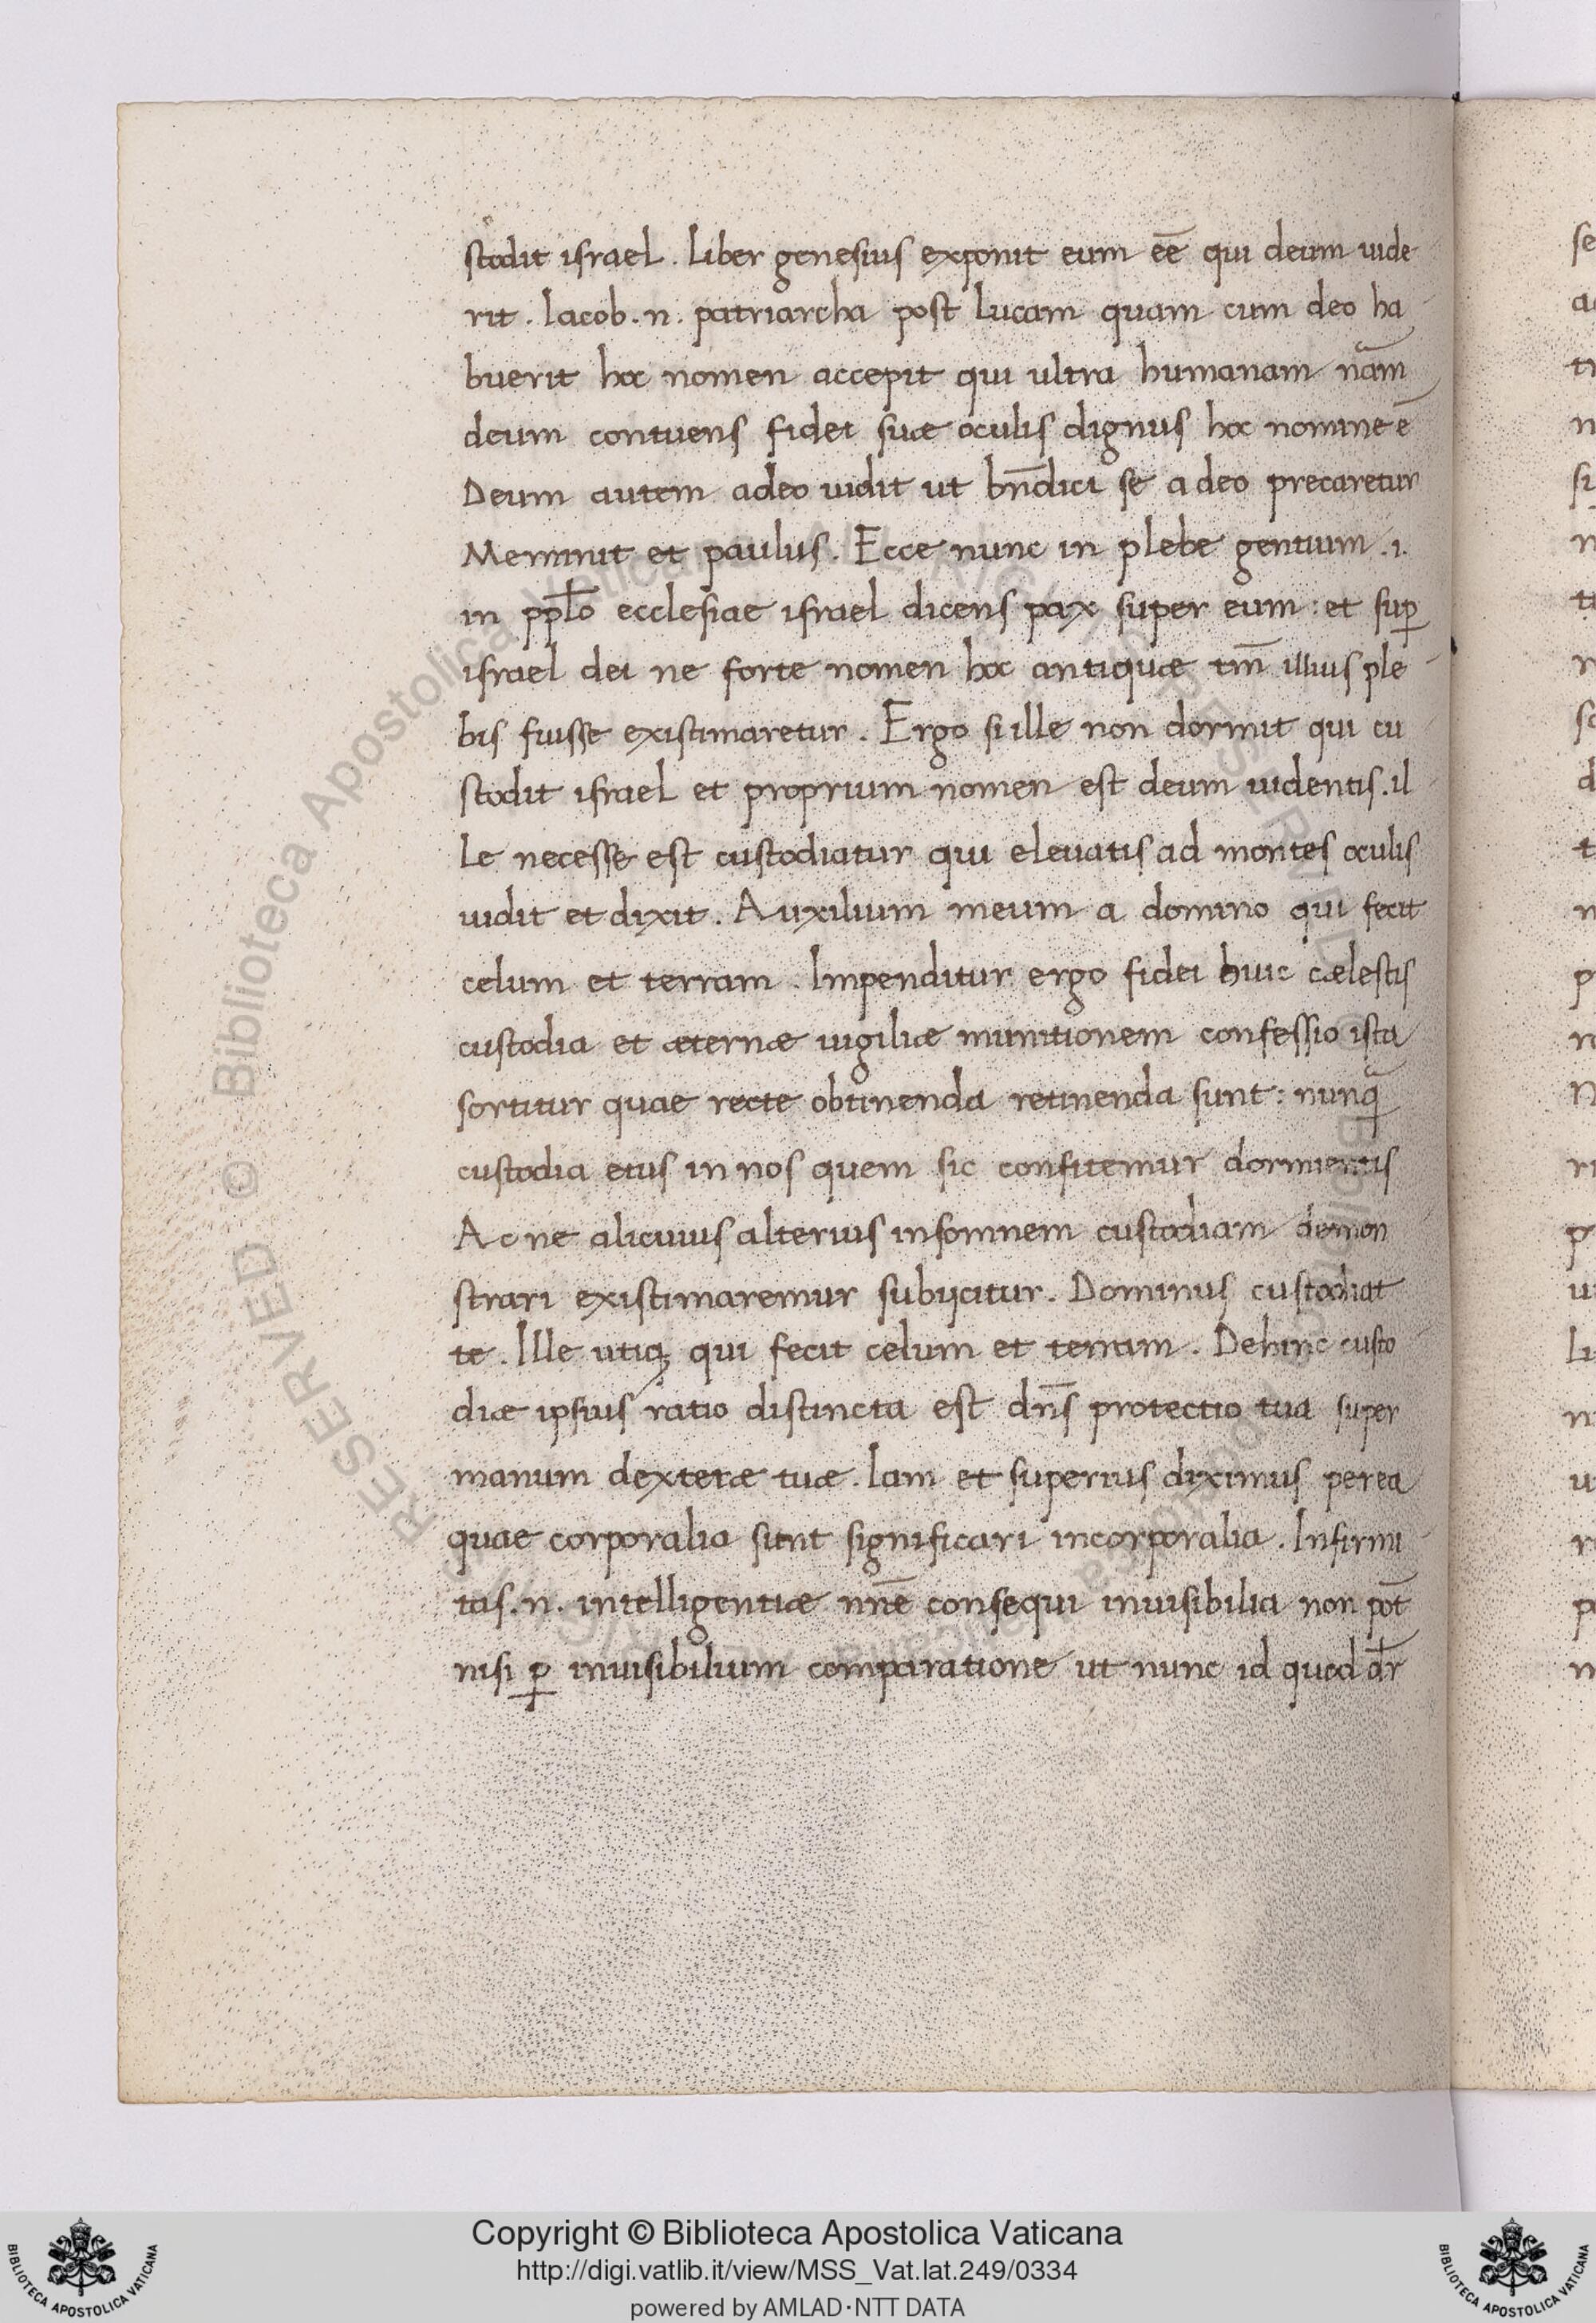 stodit israel. Liber genesius exponit eum eē qui deum uide
rit. Iacob. n. patriarcha post lucam quam cum deo ha
buerit hoc nomen accepit qui ultra humanam nãm
deum contuens fidei suæ oculis dignus hoc nomine ē
Deum autem adeo uidit ut bn̄dici se a deo precaretur
Meminit et paulus. Ecce nunc in plebe gentium .i.
in pplō ecclesiae israel dicens pax super eum: et suꝑ
israel dei ne forte nomen hoc antiquæ tm̄ illius ple
bis fuisse existimaretur. Ergo si ille non dormit qui cu
stodit israel et proprium nomen est deum uidentis. il
le necesse est custodiatur qui eleuatis ad montes oculis
uidit et dixit. Auxilium meum a domino qui fecit
celum et terram. Impenditur ergo fidei huic cælestis
custodia et æternæ uigiliæ munitionem confessio ista
sortitur quae recte obtinenda retinenda sunt: nunq̃
custodia eius in nos quem sic confitemur dormientis
Ac ne alicuius alterius insomnem custodiam demon
strari existimaremur subijcitur. Dominus custodiat
te. Ille utiq; qui fecit celum et terram. Dehinc custo
diæ ipsius ratio distincta est dn̄s protectio tua super
manum dexteræ tuæ. Iam et superius diximus per ea
quae corporalia sunt significari incorporalia. Infirmi
tas. n. intelligentiæ nr̄ē consequi inuisibilia non pōt
nisi ꝑ inuisibilium comparatione ut nunc id quod dr̄
© Biblioteca Apostolica Vaticana
RESERVED
Copyright © Biblioteca Apostolica Vaticana
http://digi.vatlib.it/view/MSS_Vat.lat.249/0334
powered by AMLAD·NTT DATA
BIBLIOTECA APOSTOLICA VATICANA
BIBLIOTECA APOSTOLICA VATICANA